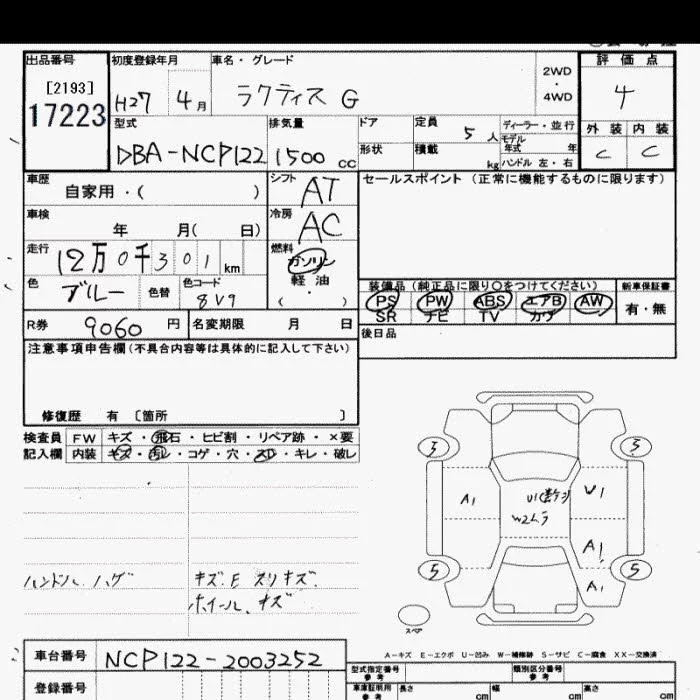 出品番号 初度登録年月 車名・グレード 2WD・4WD 評価点
[2193]
17223
H27 4月 ラクティス G 4
型式 排気量 ドア 定員 5人 ディーラー・並行 外装 内装
モデル年式 年
DBA-NCP122 1500cc 形状 積載 kg ハンドル 左・右 C C
車歴 自家用・( ) シフト AT セールスポイント (正常に機能するものに限ります)
車検 年 月( 日) 冷房 AC
走行 12万0千301km 燃料 ガソリン
軽油
・
( )
色 ブルー 色替 色コード 8V9
装備品 (純正品に限り○をつけてください) 新車保証書
PS PW ABS エアB AW 有・無
SR ナビ TV カワ
R券 9060円 名変期限 月 日 後日品
注意事項申告欄(不具合内容等は具体的に記入して下さい)
修復歴 有 〔箇所 〕
検査員 FW キズ・飛石・ヒビ割・リペア跡・×要
記入欄 内装 キズ・汚レ・コゲ・穴・スレ・キレ・破レ
3 5
A1 U1 U1
W2ムラ
A1
5 5
A1
ハンドル ハゲ キズ.E スリキズ.
ホイール.キズ
スペア
A-キズ E-エクボ U-凹み W-補修跡 S-サビ C-腐食 XX-交換済
車台番号 NCP122-2003252
型式指定番号 参考 類別区分番号 参考
登録番号 車庫証明用 参考 長さ cm 幅 cm 高さ cm